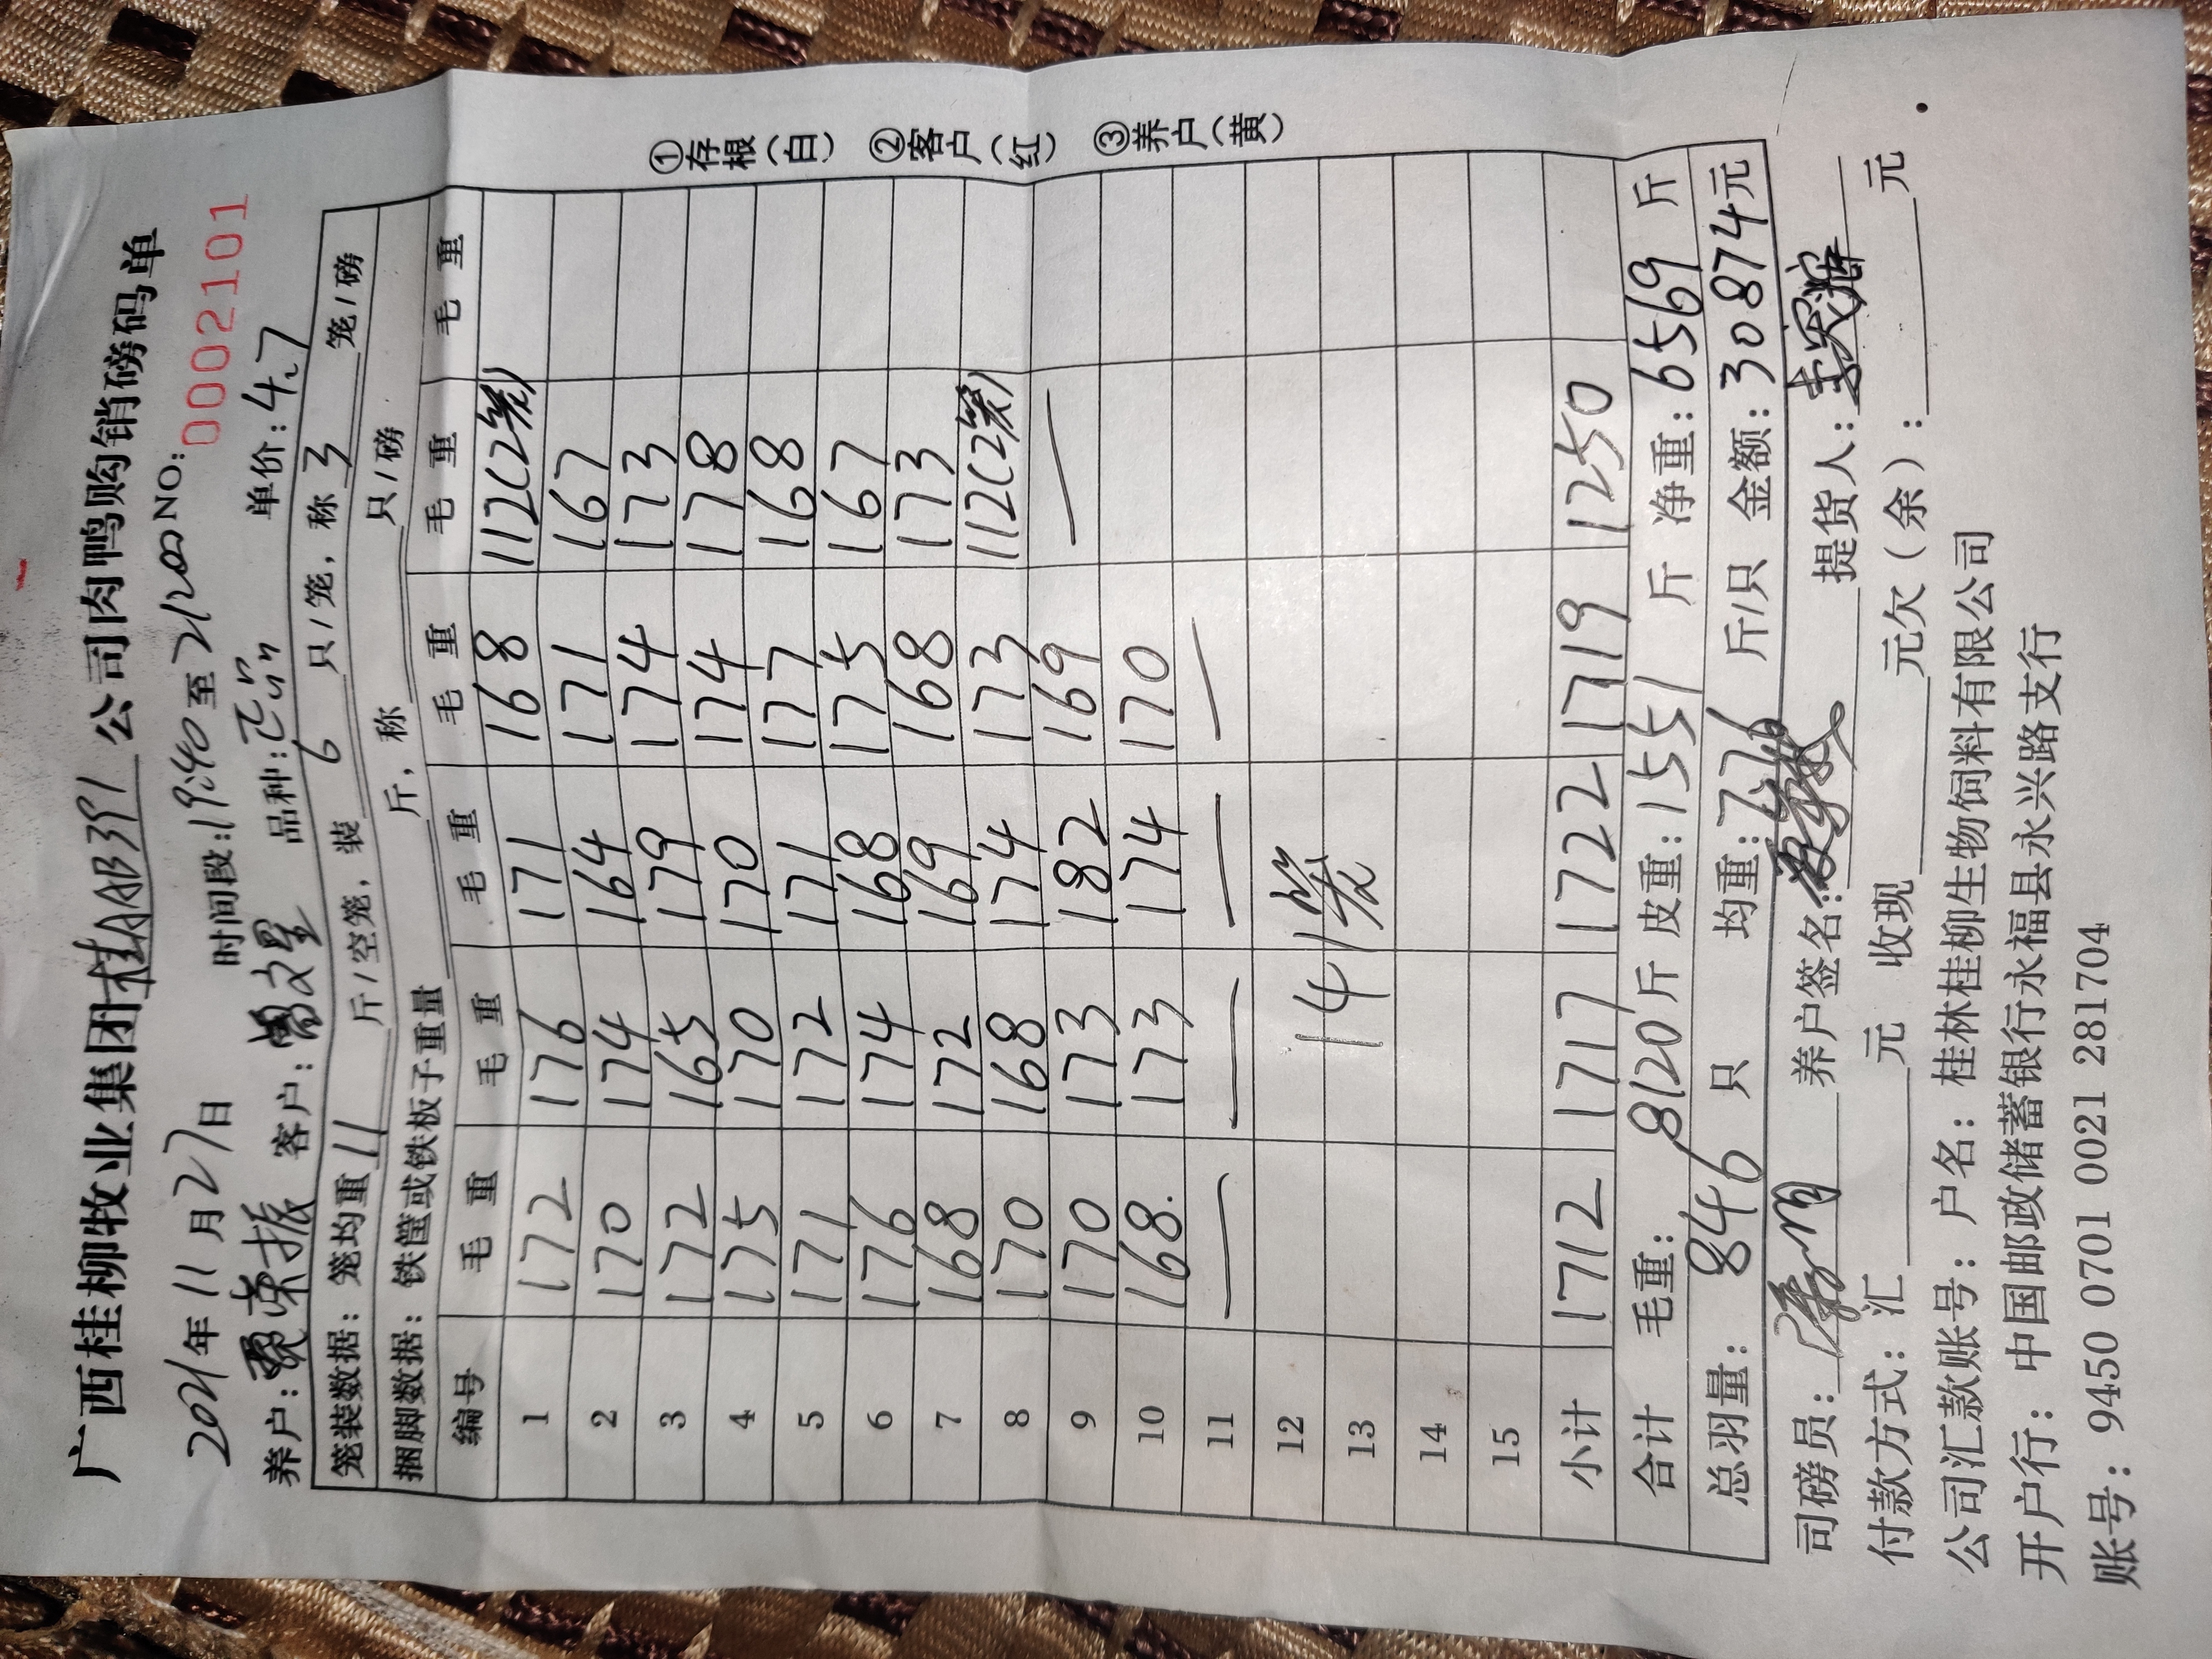 广西桂柳牧业集团 公司肉鸭购销磅码单
2021年11月27日 时间段:19:40至21:00 NO:0002101
养户: 荣振 客户: 文星 品种: 单价:4.7
笼装数据: 笼均重 11 斤/空笼, 装 6 只/笼, 称 3 笼/磅
捆脚数据: 铁筐或铁板子重量 斤, 称 只/磅
编号 毛重 毛重 毛重 毛重 毛重 毛重
1 172 176 171 168 112(2笼)
2 170 174 164 171 167
3 172 165 179 174 173
4 175 170 170 174 178
5 171 172 171 177 168
6 176 174 168 175 167
7 168 172 169 168 173
8 170 168 174 173 112(2笼)
9 170 173 182 169 —
10 168. 173 174 170
11 — — — —
12
13 141笼
14
15
小计 1712 1717 1722 1719 1250
合计 毛重: 8120斤 皮重: 1551 斤 净重: 6569 斤
总羽量: 846 只 均重: 7.76 斤/只 金额: 30874元
司磅员: 养户签名: 提货人:
付款方式: 汇 元 收现 元欠(余): 元
公司汇款账号: 户名: 桂林桂柳生物饲料有限公司
开户行: 中国邮政储蓄银行永福县永兴路支行
账号: 9450 0701 0021 281704
①存根(白) ②客户(红) ③养户(黄)